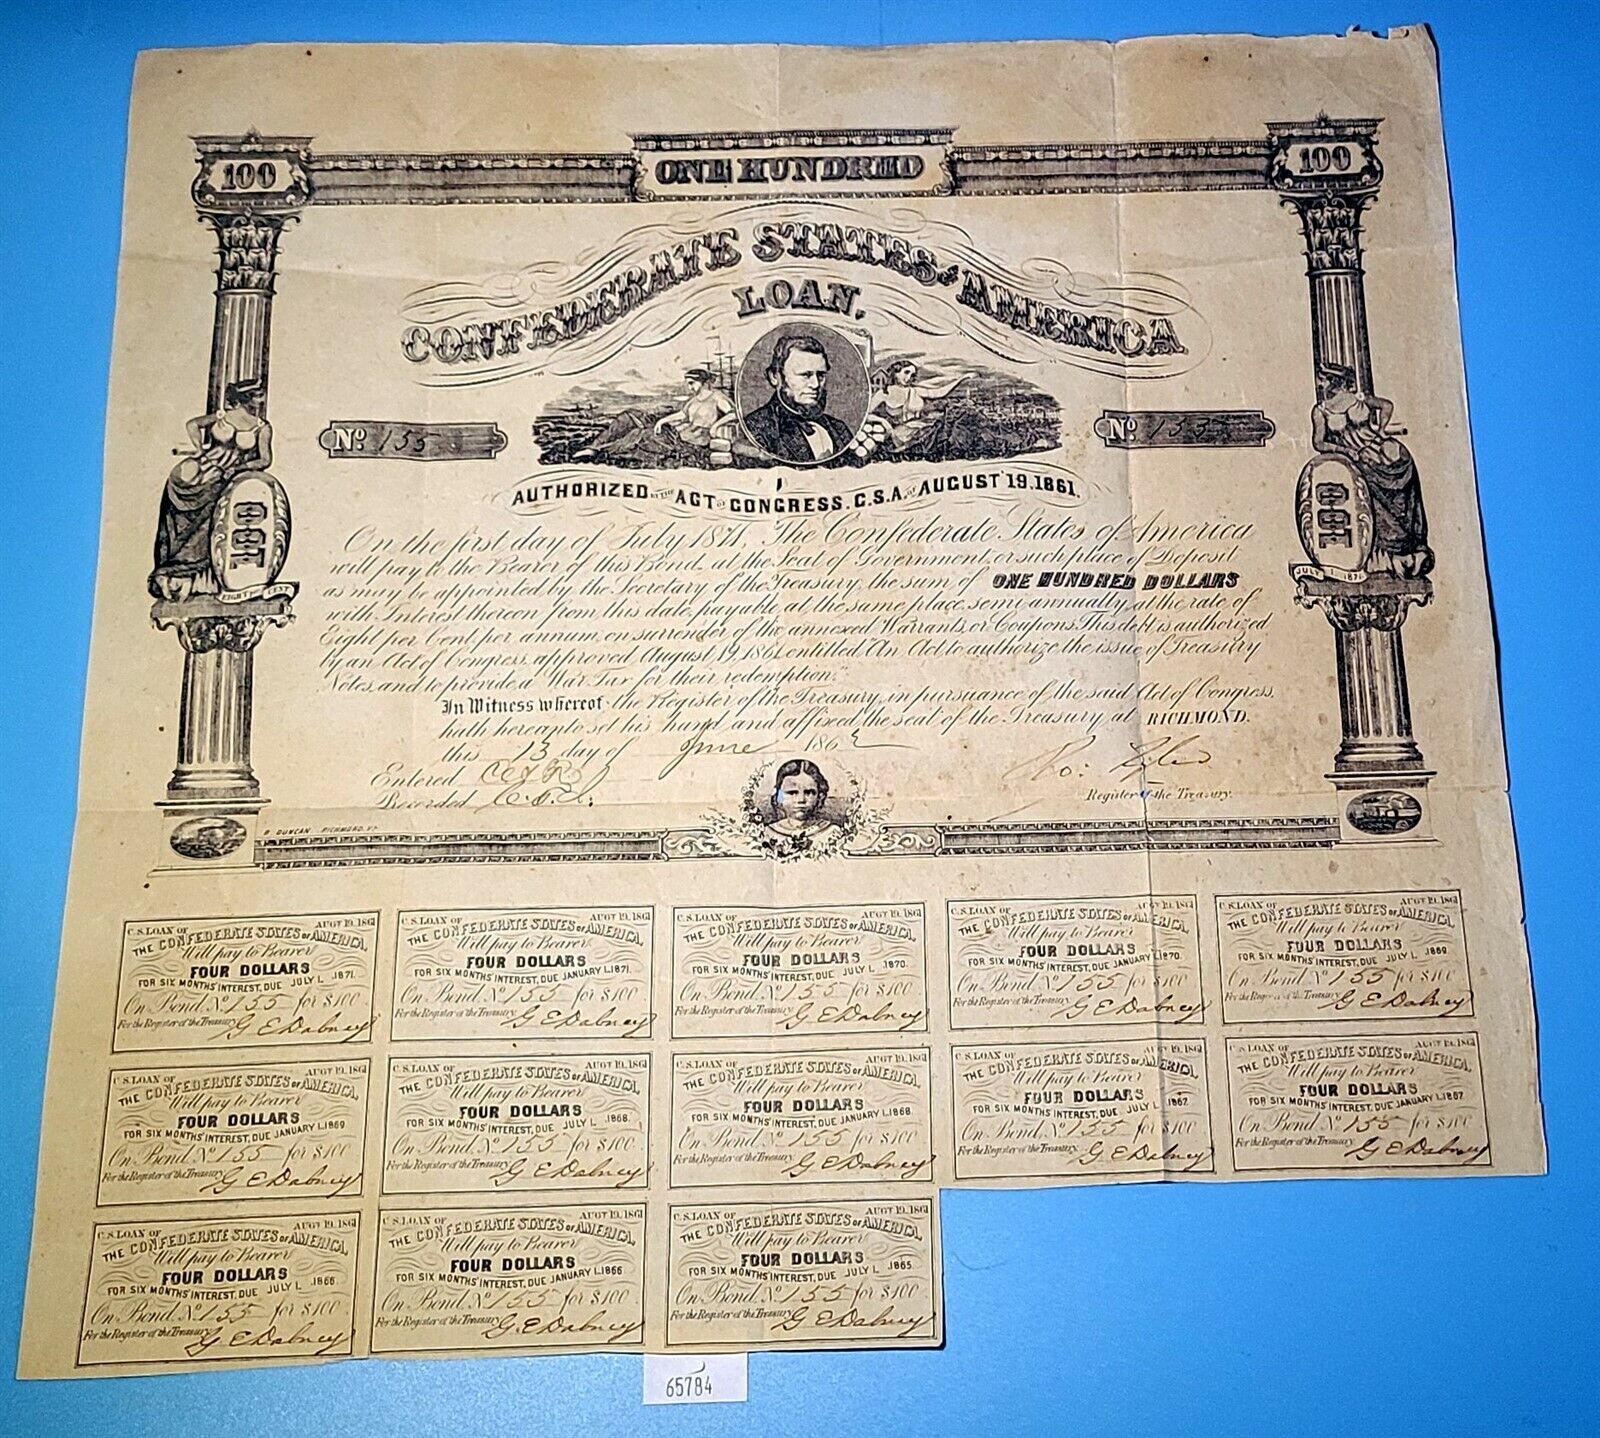 100 ONE HUNDRED 100
CONFEDERATE STATES OF AMERICA
LOAN.
No. 155 No. 155
AUTHORIZED BY THE ACT OF CONGRESS. C.S.A. OF AUGUST 19.1861.
100
100
On the first day of July 1871, The Confederate States of America
will pay to the Bearer of this Bond at the Seat of Government, or such place of Deposit
as may be appointed by the Secretary of the Treasury, the sum of ONE HUNDRED DOLLARS
EIGHT PER CENT
JULY 1. 1871
with Interest thereon from this date, payable at the same place, semi annually, at the rate of
Eight per Cent per annum, on surrender of the annexed Warrants, or Coupons. This debt is authorized
by an Act of Congress, approved August 19, 1861, entitled "An Act, to authorize the issue of Treasury
Notes, and to provide a War Tax for their redemption."
In Witness whereof the Register of the Treasury, in pursuance of the said Act of Congress,
hath hereunto set his hand and affixed the seal of the Treasury at RICHMOND.
this 13 day of June 1862
Entered
Recorded
Ro: Tyler
Register of the Treasury.
B. DUNCAN RICHMOND, VA.
C.S. LOAN OF AUGT 19. 1861
THE CONFEDERATE STATES OF AMERICA,
Will pay to Bearer
FOUR DOLLARS
FOR SIX MONTHS' INTEREST, DUE JULY 1. 1871.
On Bond, No. 155 for $100
For the Register of the Treasury G E Dabney
C.S. LOAN OF AUGT 19. 1861
THE CONFEDERATE STATES OF AMERICA,
Will pay to Bearer
FOUR DOLLARS
FOR SIX MONTHS' INTEREST, DUE JANUARY 1. 1871.
On Bond, No. 155 for $100
For the Register of the Treasury G E Dabney
C.S. LOAN OF AUGT 19. 1861
THE CONFEDERATE STATES OF AMERICA,
Will pay to Bearer
FOUR DOLLARS
FOR SIX MONTHS' INTEREST, DUE JULY 1. 1870.
On Bond, No. 155 for $100
For the Register of the Treasury G E Dabney
C.S. LOAN OF AUGT 19. 1861
THE CONFEDERATE STATES OF AMERICA,
Will pay to Bearer
FOUR DOLLARS
FOR SIX MONTHS' INTEREST, DUE JANUARY 1. 1870.
On Bond, No. 155 for $100
For the Register of the Treasury G E Dabney
C.S. LOAN OF AUGT 19. 1861
THE CONFEDERATE STATES OF AMERICA,
Will pay to Bearer
FOUR DOLLARS
FOR SIX MONTHS' INTEREST, DUE JULY 1. 1869.
On Bond, No. 155 for $100
For the Register of the Treasury G E Dabney
C.S. LOAN OF AUGT 19. 1861
THE CONFEDERATE STATES OF AMERICA,
Will pay to Bearer
FOUR DOLLARS
FOR SIX MONTHS' INTEREST, DUE JANUARY 1. 1869
On Bond, No. 155 for $100
For the Register of the Treasury G E Dabney
C.S. LOAN OF AUGT 19. 1861
THE CONFEDERATE STATES OF AMERICA,
Will pay to Bearer
FOUR DOLLARS
FOR SIX MONTHS' INTEREST, DUE JULY 1. 1868.
On Bond, No. 155 for $100
For the Register of the Treasury G E Dabney
C.S. LOAN OF AUGT 19. 1861
THE CONFEDERATE STATES OF AMERICA,
Will pay to Bearer
FOUR DOLLARS
FOR SIX MONTHS' INTEREST, DUE JANUARY 1. 1868.
On Bond, No. 155 for $100
For the Register of the Treasury G E Dabney
C.S. LOAN OF AUGT 19. 1861
THE CONFEDERATE STATES OF AMERICA,
Will pay to Bearer
FOUR DOLLARS
FOR SIX MONTHS' INTEREST, DUE JULY 1. 1867.
On Bond, No. 155 for $100
For the Register of the Treasury G E Dabney
C.S. LOAN OF AUGT 19. 1861
THE CONFEDERATE STATES OF AMERICA,
Will pay to Bearer
FOUR DOLLARS
FOR SIX MONTHS' INTEREST, DUE JANUARY 1. 1867.
On Bond, No. 155 for $100
For the Register of the Treasury G E Dabney
C.S. LOAN OF AUGT 19. 1861
THE CONFEDERATE STATES OF AMERICA,
Will pay to Bearer
FOUR DOLLARS
FOR SIX MONTHS' INTEREST, DUE JULY 1. 1866.
On Bond, No. 155 for $100
For the Register of the Treasury G E Dabney
C.S. LOAN OF AUGT 19. 1861
THE CONFEDERATE STATES OF AMERICA,
Will pay to Bearer
FOUR DOLLARS
FOR SIX MONTHS' INTEREST, DUE JANUARY 1. 1866
On Bond, No. 155 for $100
For the Register of the Treasury G. E Dabney
C.S. LOAN OF AUGT 19. 1861
THE CONFEDERATE STATES OF AMERICA,
Will pay to Bearer
FOUR DOLLARS
FOR SIX MONTHS' INTEREST, DUE JULY 1. 1865.
On Bond, No. 155 for $100
For the Register of the Treasury G E Dabney
65784